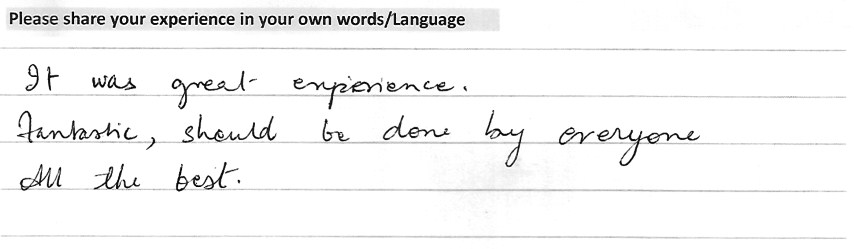 Please share your experience in your own words/Language
It was great experience.
Fantastic, should be done by everyone
All the best.